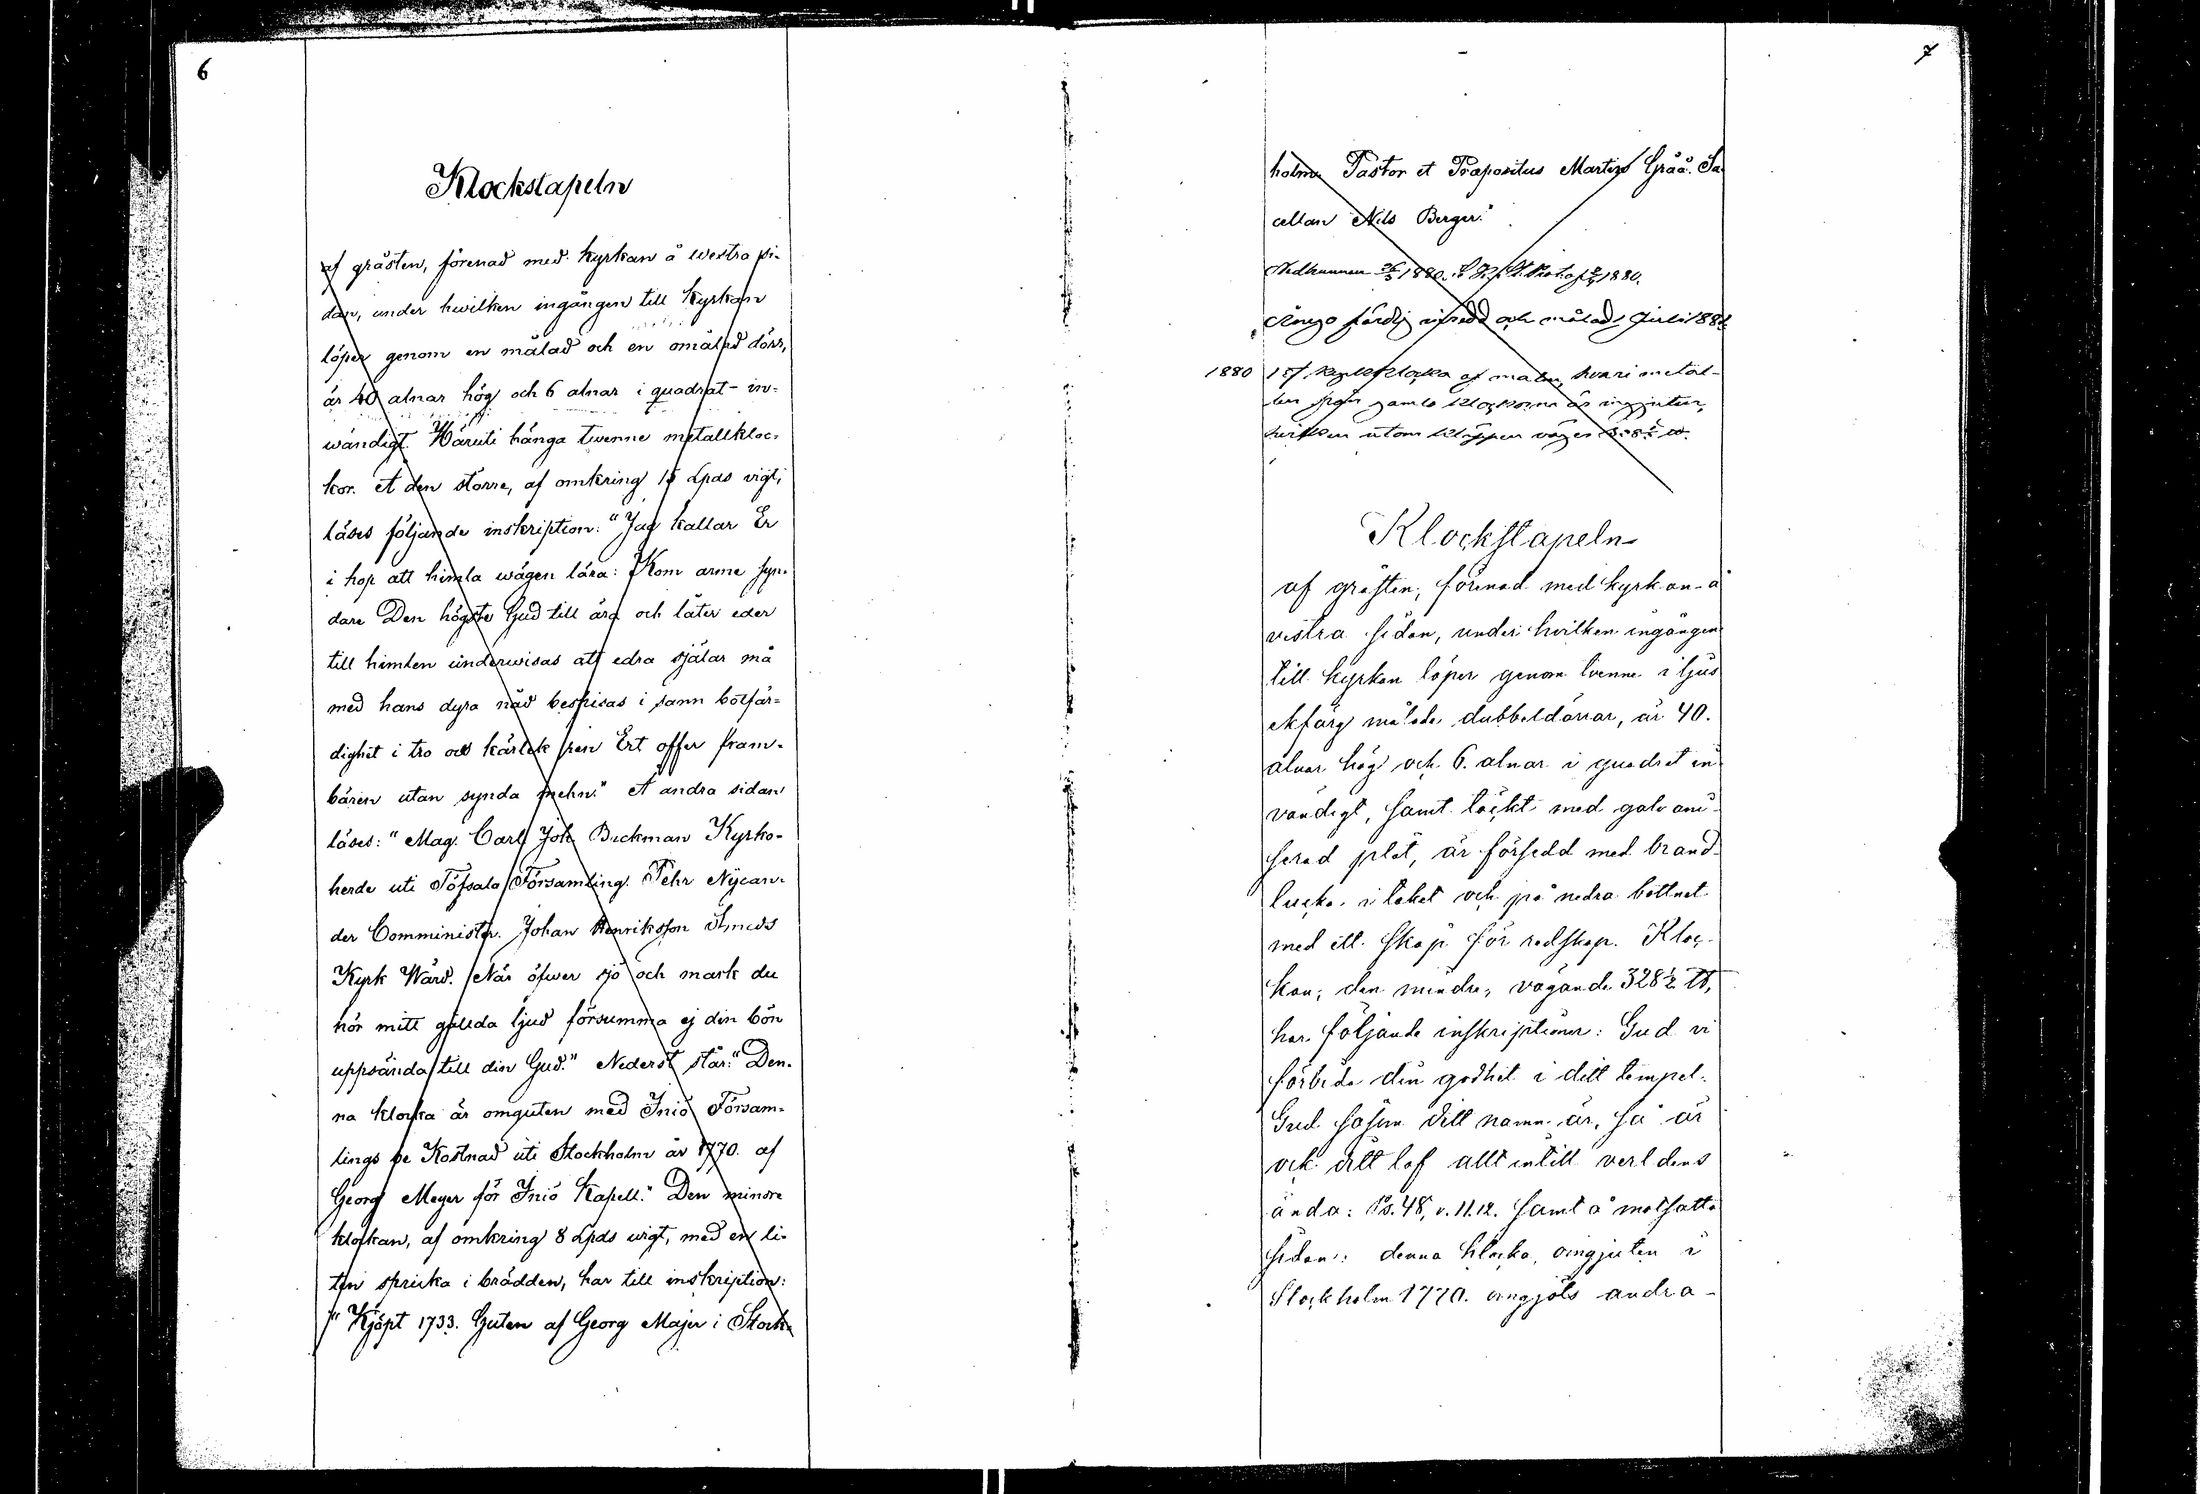 6
Klockstapeln
af gråsten, förenad med kyrkan å westra si-
dan, under hwilken ingången till kyrkan
löper genom en målad och en omålad dörr,
är 40 alnar hög och 6 alnar i quadrat in-
wändigt. Häruti hänga twenne metallkloc-
kor. A den större, af omkring 15 Lpds vigt,
läses följande inskription: "Jag kallar Er
i hop att himla wägen lära: Kom arme syn-
dare Den högste Gud till ära och låter eder
till himlen underwisas att edra själar må
med hans dyra nåd bespisas i sann botfär-
dighet i tro och kärlek ren Ert offer fram-
bären utan synda mehn." A andra sidan
läses: "Mag. Carl Joh. Beckman Kyrko-
herde uti Töfsala Församling. Pehr Nycan-
der Comminister. Johan Henriksson Smeds
Kyrk Wärd. När öfwer sjö och mark du
hör mitt gällda ljud försumma ej din bön
uppsända till din Gud." Nederst står: "Den-
na klocka är omguten med Iniö Försam-
lings be Kostnad uti Stockholm år 1770. af
Georg Meyer för Iniö Kapell." Den mindre
klockan, af omkring 8 Lpds wigt, med en li-
ten spricka i brädden, har till inskription:
"Kjöpt 1733. Guten af Georg Majer i Stock-
7
holm. Pastor et Præpositus Martin Gråå. Sa-
cellan Nils Berger."
1880.
1880.
färdig och målad Juli 188
1880 1 st. klocka af malm, hvari metal-
len från gamla klockorna är ingjuten,
hvilken utom kläppen väger
Klockstapeln
af gråsten, förenad med kyrkan å
vestra sidan, under hvilken ingången
till kyrkan löper genom tvenne i ljus
ekfärg målade dubbeldörrar, är 40.
alnar hög och 6. alnar i quadrat in-
vändigt, samt täckt med galvani-
serad plåt, är försedd med brand-
lucka i taket och på nedra bottnet
med ett skåp för redskap. Kloc-
kan, den mindre, vägande 328 1/2 ℔,
har följande inskriptioner: Gud vi
förbida din godhet i ditt tempel.
Gud såsom ditt namn är, så är
ock ditt lof allt intill verldens
ända: Ps. 48, v. 11.12. Samt å motsatta
sidan: denna klocka, omgjuten i
Stockholm 1770. omgjöts andra